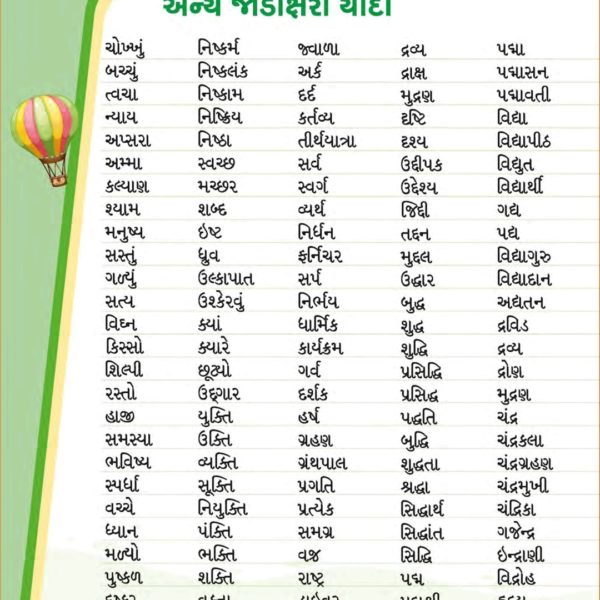 અન્ય જોડાક્ષરો યાદી
ચોખ્ખું નિષ્કર્મ જ્વાળા દ્રવ્ય પદ્મા
બચ્ચું નિષ્કલંક અર્ક દ્રાક્ષ પદ્માસન
ત્વચા નિષ્કામ દર્દ મુદ્રણ પદ્માવતી
ન્યાય નિષ્ક્રિય કર્તવ્ય દૃષ્ટિ વિદ્યા
અપ્સરા નિષ્ઠા તીર્થયાત્રા દૃશ્ય વિદ્યાપીઠ
અમ્મા સ્વચ્છ સર્વ ઉદ્દીપક વિદ્યુત
કલ્યાણ મચ્છર સ્વર્ગ ઉદ્દેશ્ય વિદ્યાર્થી
શ્યામ શબ્દ વ્યર્થ જિદ્દી ગદ્ય
મનુષ્ય ઇષ્ટ નિર્ધન તદ્દન પદ્ય
સસ્તું ધ્રુવ ફર્નિચર મુદ્દલ વિદ્યાગુરુ
ગળ્યું ઉલ્કાપાત સર્પ ઉદ્ધાર વિદ્યાદાન
સત્ય ઉશ્કેરવું નિર્ભય બુદ્ધ અદ્યતન
વિઘ્ન ક્યાં ધાર્મિક શુદ્ધ દ્રવિડ
કિસ્સો ક્યારે કાર્યક્રમ શુદ્ધિ દ્રવ્ય
શિલ્પી છૂટ્યો ગર્વ પ્રસિદ્ધિ દ્રોણ
રસ્તો ઉદ્ગાર દર્શક પ્રસિદ્ધ મુદ્રણ
હાજી યુક્તિ હર્ષ પદ્ધતિ ચંદ્ર
સમસ્યા ઉક્તિ ગ્રહણ બુદ્ધિ ચંદ્રકલા
ભવિષ્ય વ્યક્તિ ગ્રંથપાલ શુદ્ધતા ચંદ્રગ્રહણ
સ્પર્ધા સૂક્તિ પ્રગતિ શ્રદ્ધા ચંદ્રમુખી
વચ્ચે નિયુક્તિ પ્રત્યેક સિદ્ધાર્થ ચંદ્રિકા
ધ્યાન પંક્તિ સમગ્ર સિદ્ધાંત ગજેન્દ્ર
મળ્યો ભક્તિ વજ્ર સિદ્ધિ ઇન્દ્રાણી
પુષ્કળ શક્તિ રાષ્ટ્ર પદ્મ વિદ્રોહ